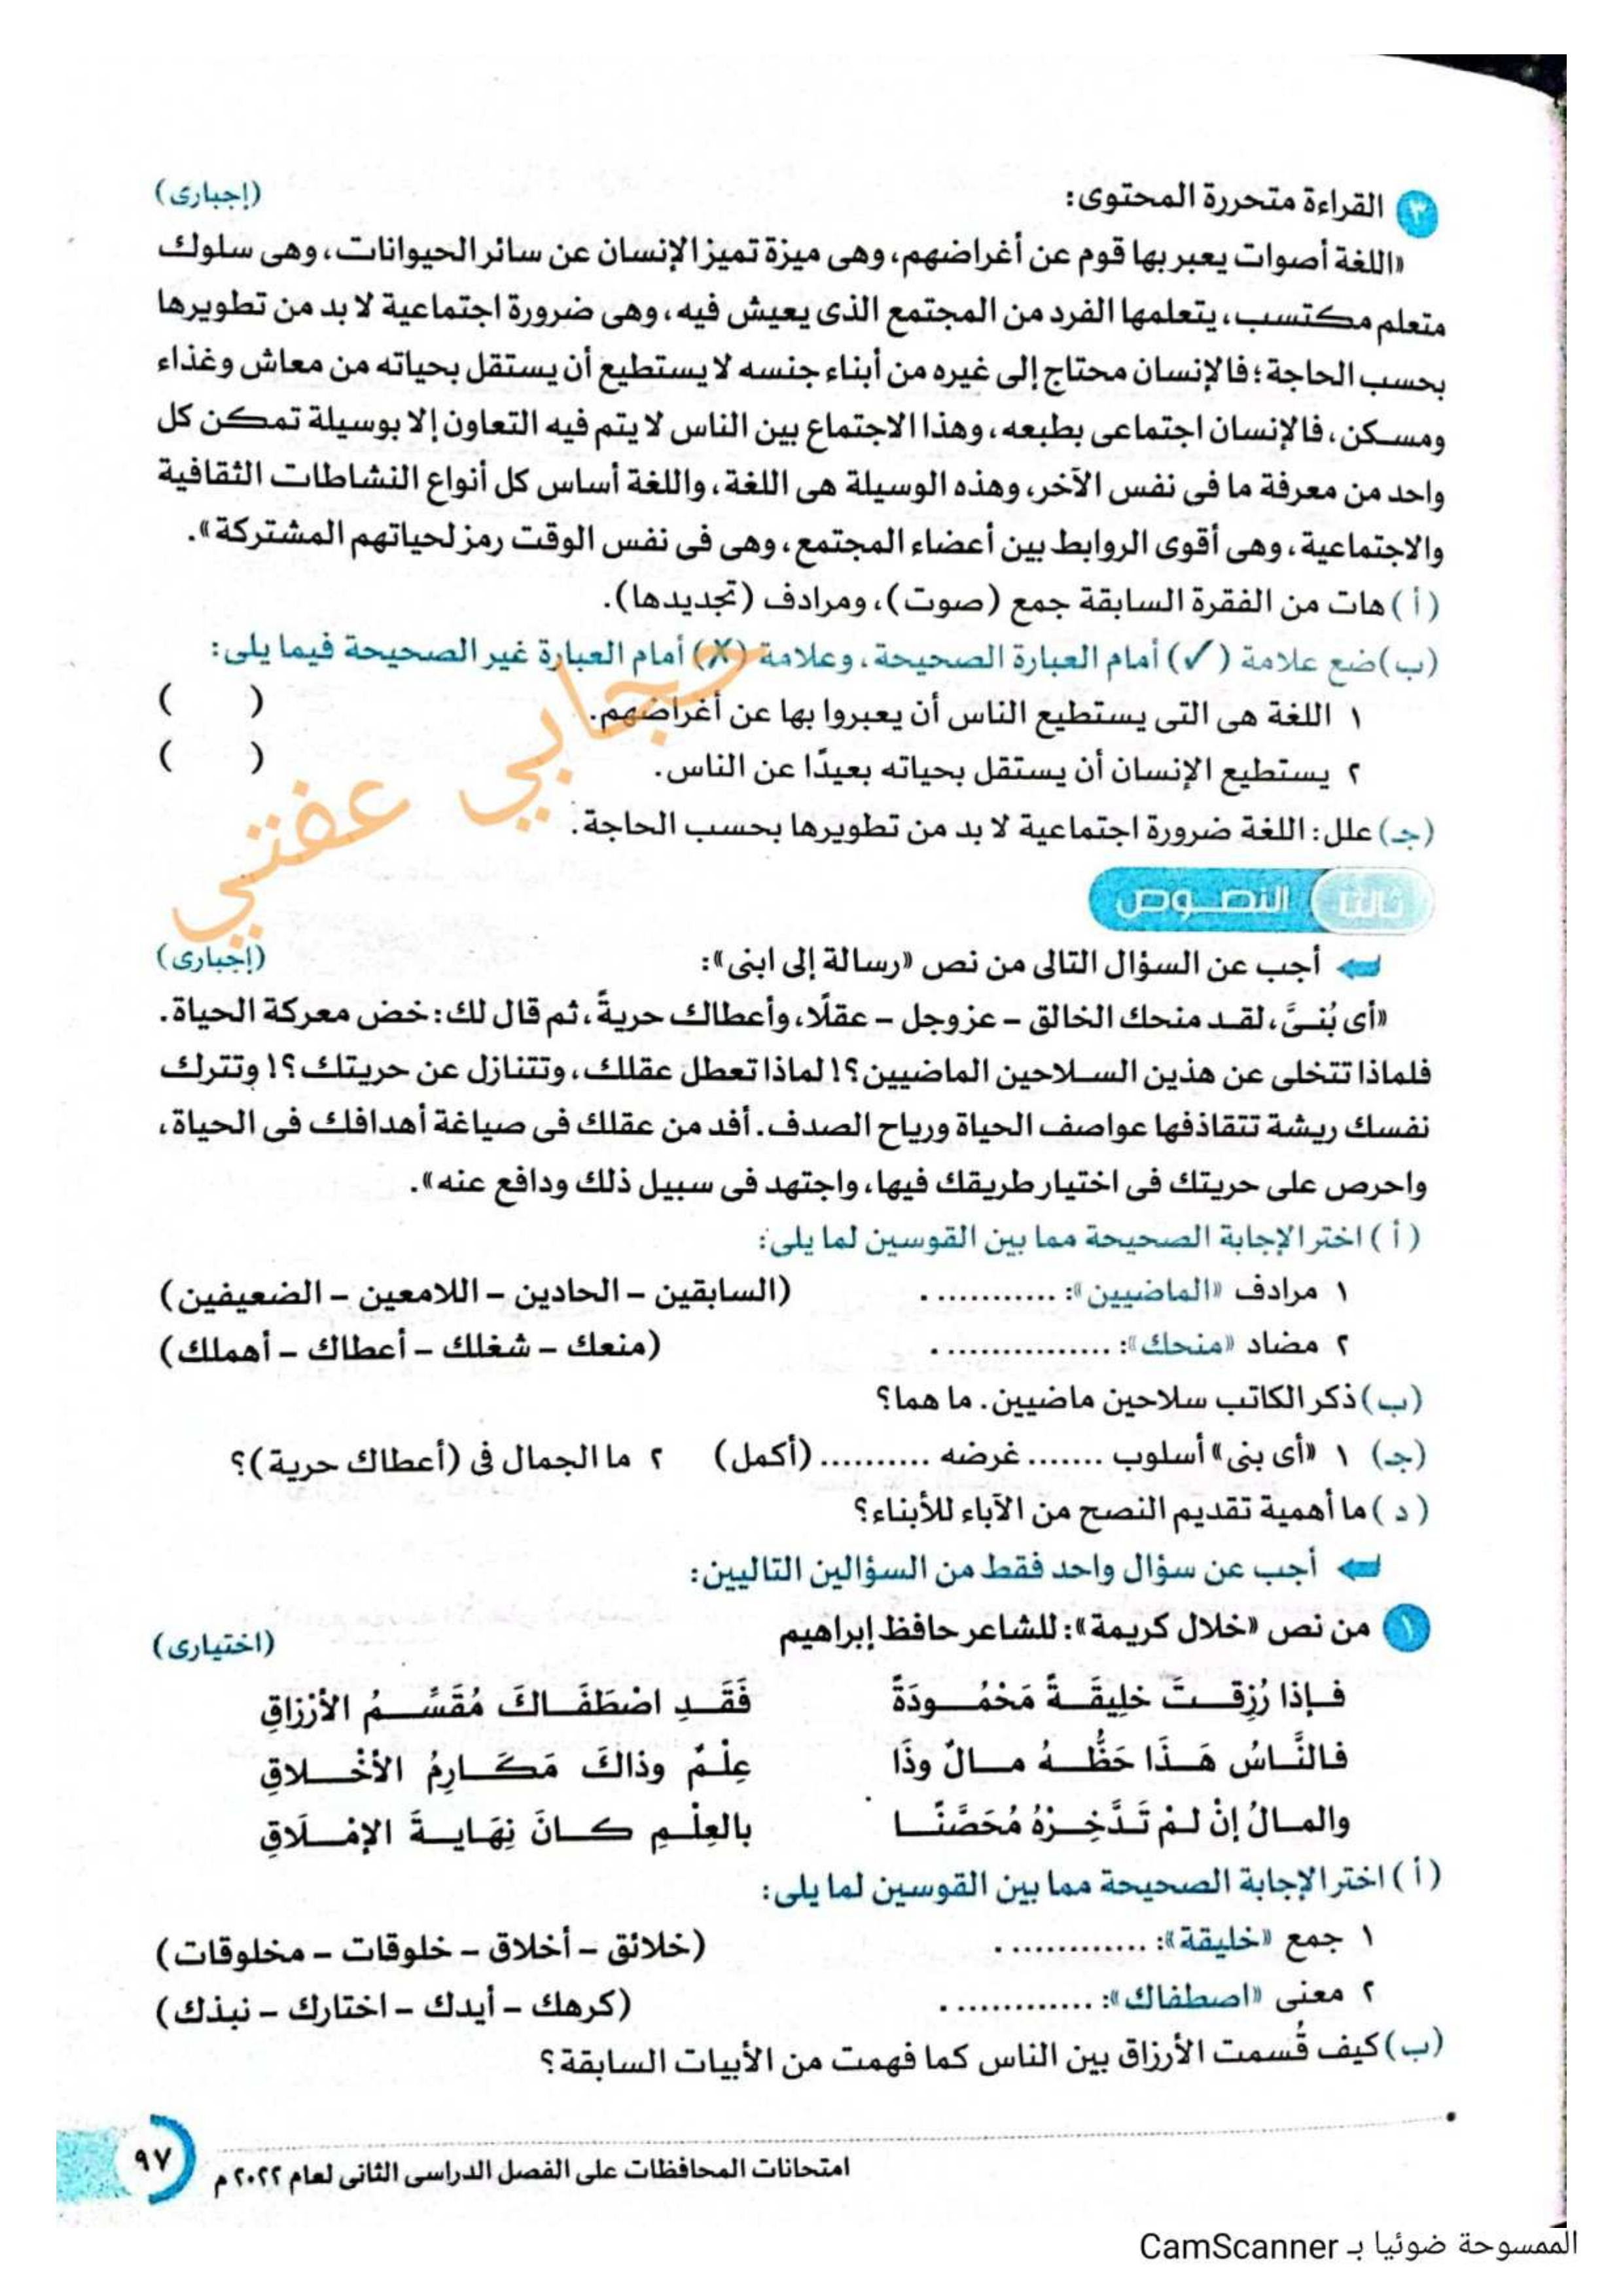 ٣ القراءة متحررة المحتوى: (إجبارى)
«اللغة أصوات يعبر بها قوم عن أغراضهم، وهى ميزة تميز الإنسان عن سائر الحيوانات، وهى سلوك
متعلم مكتسب، يتعلمها الفرد من المجتمع الذى يعيش فيه، وهى ضرورة اجتماعية لا بد من تطويرها
بحسب الحاجة؛ فالإنسان محتاج إلى غيره من أبناء جنسه لا يستطيع أن يستقل بحياته من معاش وغذاء
ومسكن، فالإنسان اجتماعى بطبعه، وهذا الاجتماع بين الناس لا يتم فيه التعاون إلا بوسيلة تمكن كل
واحد من معرفة ما فى نفس الآخر، وهذه الوسيلة هى اللغة، واللغة أساس كل أنواع النشاطات الثقافية
والاجتماعية، وهى أقوى الروابط بين أعضاء المجتمع، وهى فى نفس الوقت رمز لحياتهم المشتركة».
(أ) هات من الفقرة السابقة جمع (صوت)، ومرادف (تجديدها).
(ب) ضع علامة (✓) أمام العبارة الصحيحة، وعلامة (✗) أمام العبارة غير الصحيحة فيما يلى:
١ اللغة هى التى يستطيع الناس أن يعبروا بها عن أغراضهم. ( )
٢ يستطيع الإنسان أن يستقل بحياته بعيدًا عن الناس. ( )
(جـ) علل: اللغة ضرورة اجتماعية لا بد من تطويرها بحسب الحاجة.
حجابي عفتي
ثالثا النصوص
أجب عن السؤال التالى من نص «رسالة إلى ابنى»: (إجبارى)
«أى بُنىَّ، لقد منحك الخالق – عزوجل – عقلًا، وأعطاك حريةً، ثم قال لك: خض معركة الحياة.
فلماذا تتخلى عن هذين السلاحين الماضيين؟! لماذا تعطل عقلك، وتتنازل عن حريتك؟! وتترك
نفسك ريشة تتقاذفها عواصف الحياة ورياح الصدف. أفد من عقلك فى صياغة أهدافك فى الحياة،
واحرص على حريتك فى اختيار طريقك فيها، واجتهد فى سبيل ذلك ودافع عنه».
(أ) اختر الإجابة الصحيحة مما بين القوسين لما يلى:
١ مرادف «الماضيين»: ............ . (السابقين – الحادين – اللامعين – الضعيفين)
٢ مضاد «منحك»: ................ . (منعك – شغلك – أعطاك – أهملك)
(ب) ذكر الكاتب سلاحين ماضيين. ما هما؟
(جـ) ١ «أى بنى» أسلوب ....... غرضه .......... (أكمل) ٢ ما الجمال فى (أعطاك حرية)؟
(د) ما أهمية تقديم النصح من الآباء للأبناء؟
أجب عن سؤال واحد فقط من السؤالين التاليين:
١ من نص «خلال كريمة»: للشاعر حافظ إبراهيم (اختيارى)
فإذا رُزِقتَ خلِيقَةً مَحْمُودَةً فَقَدِ اصْطَفَاكَ مُقَسِّمُ الأرْزاقِ
فالنَّاسُ هَذَا حَظُّهُ مالٌ وذَا عِلْمٌ وذاكَ مَكَارِمُ الأخْلاقِ
والمالُ إنْ لمْ تَدَّخِرْهُ مُحَصَّنًا بالعِلْمِ كانَ نِهَايةَ الإمْلَاقِ
(أ) اختر الإجابة الصحيحة مما بين القوسين لما يلى:
١ جمع «خليقة»: ............. . (خلائق – أخلاق – خلوقات – مخلوقات)
٢ معنى «اصطفاك»: ............. . (كرهك – أيدك – اختارك – نبذك)
(ب) كيف قُسمت الأرزاق بين الناس كما فهمت من الأبيات السابقة؟
امتحانات المحافظات على الفصل الدراسى الثانى لعام ٢٠٢٢ م ٩٧
الممسوحة ضوئيا بـ CamScanner